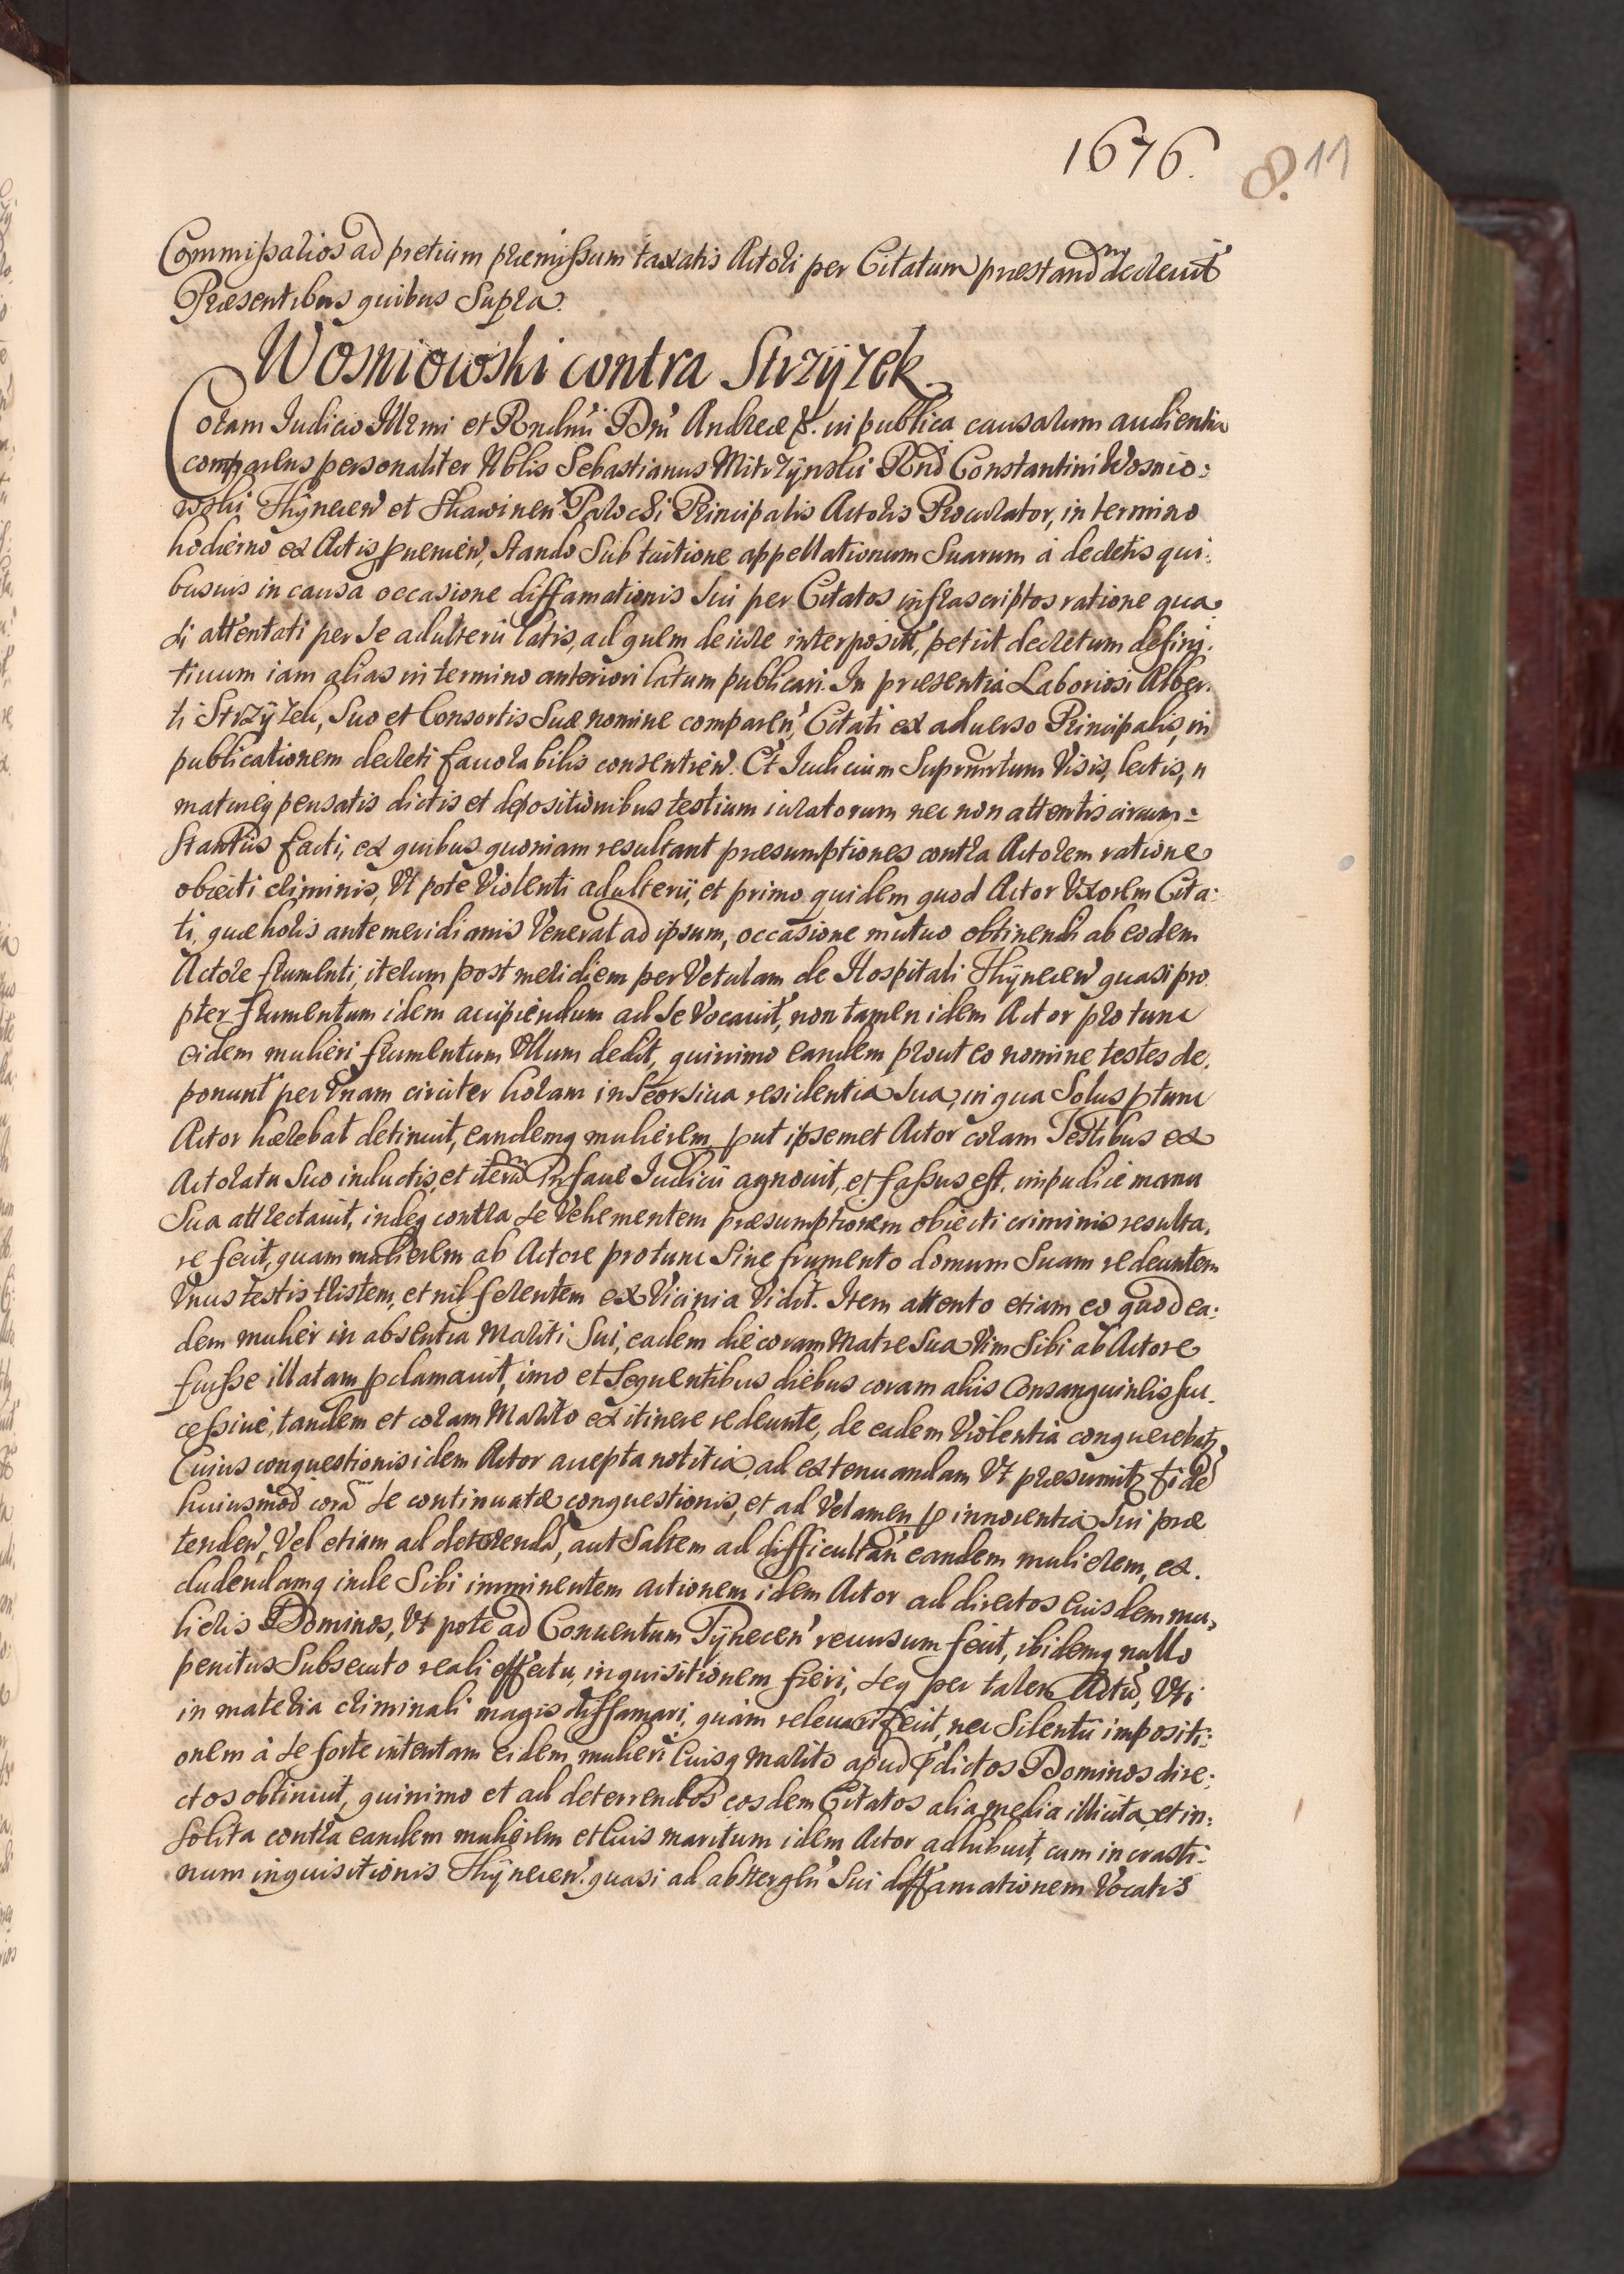 1676.
8. 11
Commissalios ad pretium præmissum taxatis Actori per Citatum præstand decrevit
Præsentibus quibus Supra.
Wosniowski contra Strzyżek
Coram Iudicio Illrmi et Rndmi Dni Andreæ &. in publica causarum audientia
comparens personaliter Nblis Sebastianus Mitrzynski Rnd Constantini Wosnio:
wski Thynecen et Skawinen Parochi Principalis Actoris Procurator, in termino
hodierno ex Actis pvenien, stando Sub tuitione appellationum Suarum à decretis qui:
busvis in causa occasione diffamationis Sui per Citatos infrascriptos ratione qua
si attentati per se adulterii latis, ad quem de iure interposit, petiit decretum defini:
tivum iam alias in termino anteriori latum publicari. In præsentia Laboriosi Alber:
ti Strzyżek, Suo et Consortis Suæ nomine comparen, Citati ex adverso Principalis, in
publicationem decreti favorabilis consentien. Et Iudicium Suprantum Visis, lectis,
matureq pensatis dictis et depositionibus testium iuratorum nec non attentis circum:
stantiis facti, ex quibus quoniam resultant præsumptiones contra Actorem ratione
obiecti criminis, Ut pote Violenti adulterii, et primo quidem quod Actor Uxorem Cita:
ti, quæ horis antemeridianis Venerat ad ipsum, occasione mutuo obtinendi ab eodem
Actore frumenti, iterum post meridiem per Vetulam de Hospitali Thynecen quasi pro
pter frumentum idem accipiendum ad se Vocavit, non tamen idem Actor pro tunc
eidem mulieri frumentum Ullum dedit, quinimo eandem prout eo nomine testes de:
ponunt per Unam circiter horam in Seorsiva residentia Sua, in qua Solus ptunc
Actor hærebat detinuit, eandemq mulierem, put ipsemet Actor coram Testibus ex
Actoratu Suo inductis, et iterum In facie Iudicii agnovit, et fassus est, impudice manu
Sua attrectavit, indeq contra se Vehementem præsumptionem obiecti criminis resulta:
re fecit, quam mulierem ab Actore pro tunc Sine frumento domum Suam redeuntem
Unus testis tristem, et nil ferentem ex Vicinia Vidit. Item attento etiam eo quod ea:
dem mulier in absentia Mariti Sui, eadem die coram Matre Sua Vim Sibi ab Actore
fuisse illatam pclamavit, imo et Sequentibus diebus coram aliis Consanguineis suc:
cessive, tandem et coram Marito ex itinere redeunte, de eadem Violentia conquerebatr,
Cuius conquestionis idem Actor accepta notitia, ad extenuandam Ut præsumitr fide
huiusmod corã se continuatæ conquestionis, et ad Velamen p innocentia Sui præ
tenden, Vel etiam ad deterrendã, aut Saltem ad difficultan eandem mulierem, ex:
cludendamq inde Sibi imminentem actionem idem Actor ad directos Eiusdem mu:
lieris Dominos, Ut pote ad Conventum Tynecen recursum fecit, ibidemq nullo
penitus Subsecuto reali effectu, inquisitionem fieri, Seq per talem Actũ, Uti
in materia criminali magis diffamari, quàm relevari fecit, nec Silentii impositi:
onem à se forte intentam eidem mulieri Eiusq Marito apud pdictos Dominos dire:
ctos obtinuit, quinimo et ad deterrendos eosdem Citatos alia media illicita, et in:
solita contra eandem mulierem et Eius maritum idem Actor adhibuit, cum in crasti:
num inquisitionis Thynecen. quasi ad abstergln Sui diffamationem Vocatis